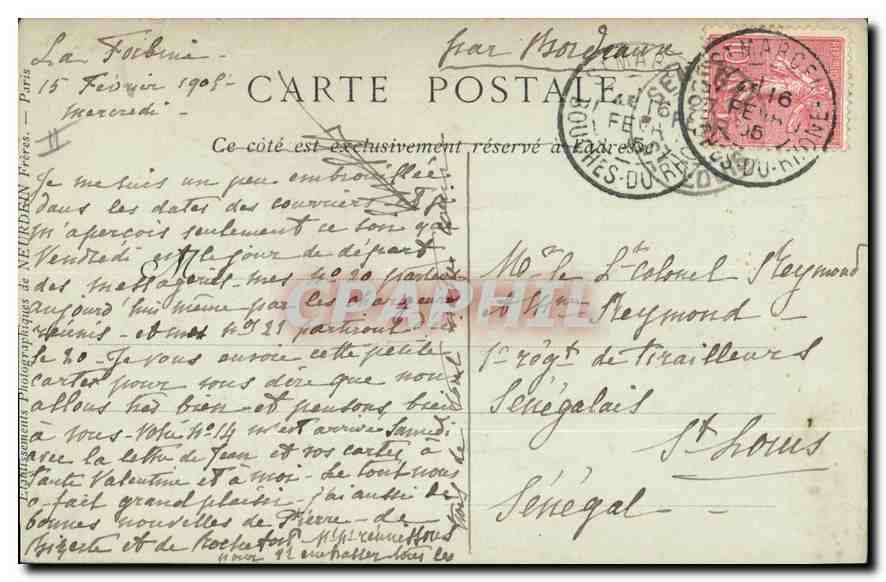 La Forbine -
15 Février 1905 -
Mercredi -
II
par Bordeaux
CARTE POSTALE
Ce côté est exclusivement réservé à l'adresse
Je me suis un peu embrouillée
dans les dates des courriers et je
m'aperçois seulement ce soir que
Vendredi est le jour de départ
des messageries - mes Nº 20 partent
aujourd'hui même par les chargeurs
réunis - et mes Nº 21 partiront
le 20 - Je vous envoie cette petite
carte pour vous dire que nous
allons très bien - et pensons bien
à vous - Votre Nº 14 m'est arrivé Samedi
avec la lettre de Jean et vos cartes à
tante Valentine et à moi - Le tout nous
a fait grand plaisir - j'ai aussi de
bonnes nouvelles de Pierre - de
Bizerte et de Rochefort -
pour embrasser tous les
Mr le Lt Colonel Reymond
et Mme Reymond -
1er régt de tirailleurs
Sénégalais
St Louis
Sénégal -
ST MARCEL
16
FEVR
05
BOUCHES-DU-RHONE
ST MARCEL
16
FEVR
05
BOUCHES-DU-RHONE
10
CPARHEL
Etablissements Photographiques de NEURDEIN Frères. — Paris